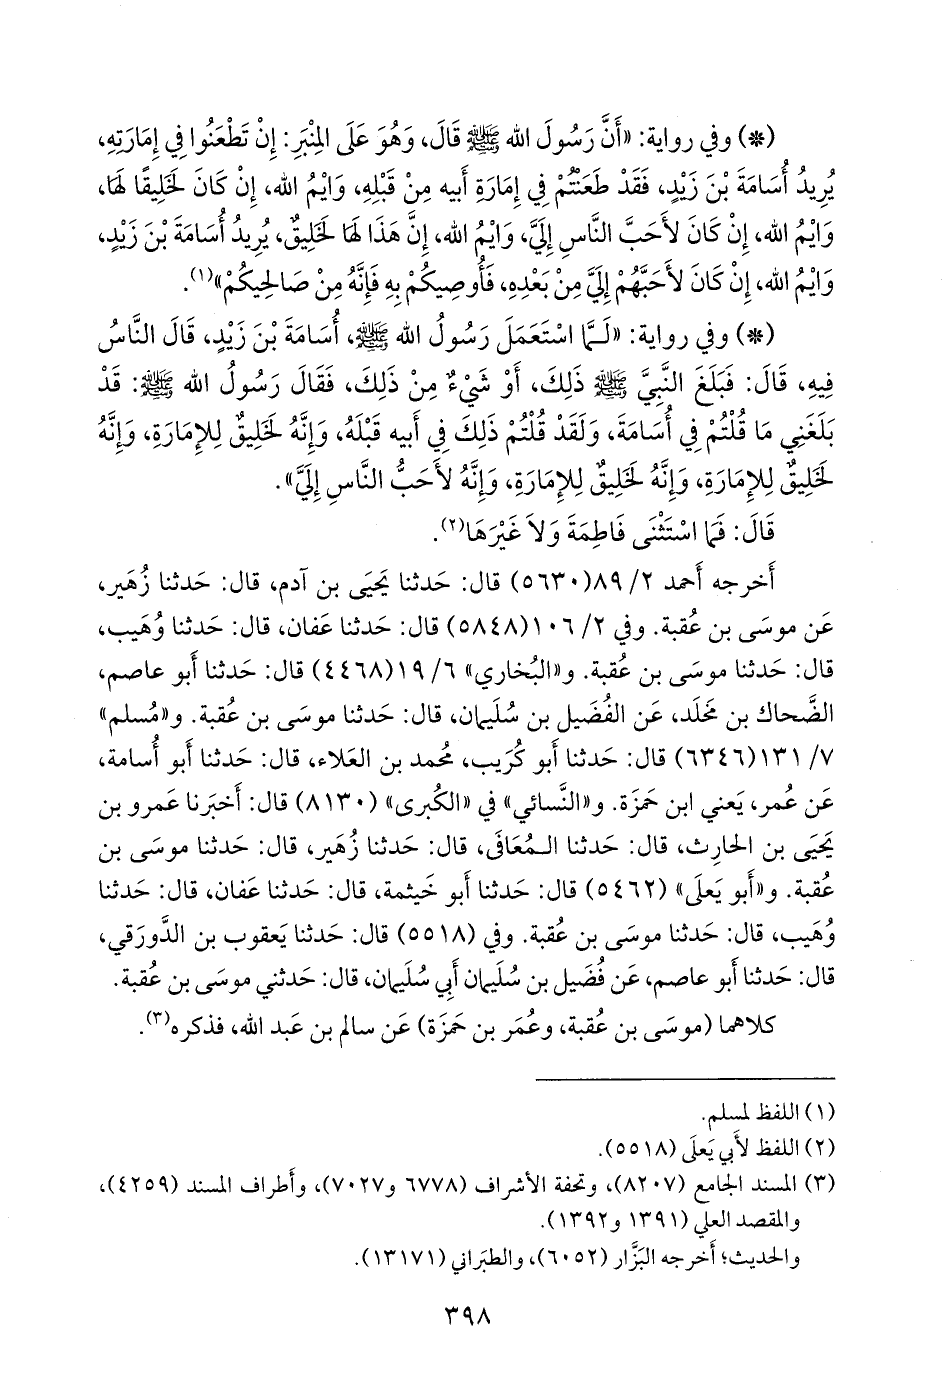 (*) وفي رواية: «أَنَّ رَسُولَ الله ﷺ قَالَ، وَهُوَ عَلَى المِنْبَرِ: إِنْ تَطْعَنُوا فِي إِمَارَتِهِ،
يُرِيدُ أُسَامَةَ بْنَ زَيْدٍ، فَقَدْ طَعَنْتُمْ فِي إِمَارَةِ أَبِيه مِنْ قَبْلِهِ، وَايْمُ الله، إِنْ كَانَ لَخَلِيقًا لَهَا،
وَايْمُ الله، إِنْ كَانَ لأَحَبَّ النَّاسِ إِلَيَّ، وَايْمُ الله، إِنَّ هَذَا لَهَا لَخَلِيقٌ، يُرِيدُ أُسَامَةَ بْنَ زَيْدٍ،
وَايْمُ الله، إِنْ كَانَ لأَحَبَّهُمْ إِلَيَّ مِنْ بَعْدِهِ، فَأُوصِيكُمْ بِهِ فَإِنَّهُ مِنْ صَالِحِيكُمْ»(١).
(*) وفي رواية: «لَـمَّا اسْتَعمَلَ رَسُولُ الله ﷺ، أُسَامَةَ بْنَ زَيْدٍ، قَالَ النَّاسُ
فِيهِ، قَالَ: فَبَلَغَ النَّبِيَّ ﷺ ذَلِكَ، أَوْ شَيْءٌ مِنْ ذَلِكَ، فَقَالَ رَسُولُ الله ﷺ: قَدْ
بَلَغَنِي مَا قُلْتُمْ فِي أُسَامَةَ، وَلَقَدْ قُلْتُمْ ذَلِكَ فِي أَبِيه قَبْلَهُ، وَإِنَّهُ لَخَلِيقٌ لِلإِمَارَةِ، وَإِنَّهُ
لَخَلِيقٌ لِلإِمَارَةِ، وَإِنَّهُ لَخَلِيقٌ لِلإِمَارَةِ، وَإِنَّهُ لأَحَبُّ النَّاسِ إِلَيَّ».
قَالَ: فَمَا اسْتَثْنَى فَاطِمَةَ وَلاَ غَيْرَهَا(٢).
أَخرجه أَحمد ٢/ ٨٩(٥٦٣٠) قال: حَدثنا يَحيَى بن آدم، قال: حَدثنا زُهَير،
عَن موسَى بن عُقبة. وفي ٢/ ١٠٦(٥٨٤٨) قال: حَدثنا عَفان، قال: حَدثنا وُهَيب،
قال: حَدثنا موسَى بن عُقبة. و«البُخاري» ٦/ ١٩(٤٤٦٨) قال: حَدثنا أَبو عاصم،
الضَّحاك بن مَخلَد، عَن الفُضَيل بن سُليمان، قال: حَدثنا موسَى بن عُقبة. و«مُسلم»
٧/ ١٣١(٦٣٤٦) قال: حَدثنا أَبو كُرَيب، مُحمد بن العَلاء، قال: حَدثنا أَبو أُسامة،
عَن عُمر، يَعني ابن حَمزَة. و«النَّسائي» في «الكُبرى» (٨١٣٠) قال: أَخبَرنا عَمرو بن
يَحيَى بن الحارِث، قال: حَدثنا الـمُعَافَى، قال: حَدثنا زُهَير، قال: حَدثنا موسَى بن
عُقبة. و«أَبو يَعلَى» (٥٤٦٢) قال: حَدثنا أَبو خَيثمة، قال: حَدثنا عَفان، قال: حَدثنا
وُهَيب، قال: حَدثنا موسَى بن عُقبة. وفي (٥٥١٨) قال: حَدثنا يَعقوب بن الدَّورَقي،
قال: حَدثنا أَبو عاصم، عَن فُضَيل بن سُليمان أَبِي سُليمان، قال: حَدثني موسَى بن عُقبة.
كلاهما (موسَى بن عُقبة، وعُمَر بن حَمزَة) عَن سالم بن عَبد الله، فذكره(٣).
(١) اللفظ لمسلم.
(٢) اللفظ لأَبِي يَعلَى (٥٥١٨).
(٣) المسند الجامع (٨٢٠٧)، وتحفة الأشراف (٦٧٧٨ و٧٠٢٧)، وأَطراف المسند (٤٢٥٩)،
والمقصد العلي (١٣٩١ و١٣٩٢).
والحديث؛ أَخرجه البَزَّار (٦٠٥٢)، والطبَراني (١٣١٧١).
٣٩٨